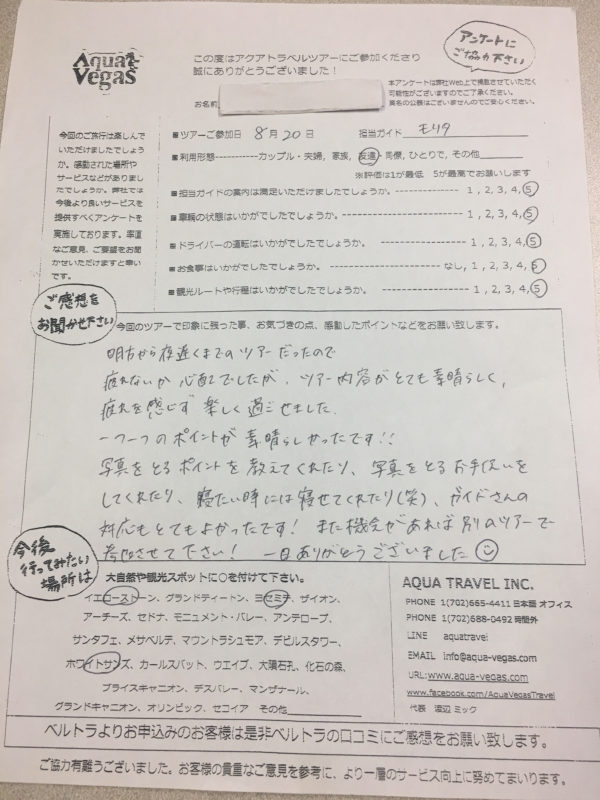 Aqua
Vegas
この度はアクアトラベルツアーにご参加くださり
誠にありがとうございました!
アンケートに
ご協力下さい
本アンケートは弊社Web上で掲載させていただく
可能性がございますのでご了承ください。
実名の公表はございませんのでご安心ください。
お名前
今回のご旅行は楽しんで
いただけましたでしょう
か。感動された場所や
サービスなどがありまし
たでしょうか。弊社では
今後より良いサービスを
提供すべくアンケートを
実施しております。率直
なご意見、ご要望をお聞
かせいただけますと幸い
です。
■ツアーご参加日 8月20日 担当ガイド モリタ
■利用形態-----------カップル・夫婦, 家族, 友達・同僚, ひとりで, その他
※評価は1が最低 5が最高でお願いします
■担当ガイドの案内は満足いただけましたでしょうか。---------- 1, 2, 3, 4, 5
■車輌の状態はいかがでしたでしょうか。---------------------- 1, 2, 3, 4, 5
■ドライバーの運転はいかがでしたでしょうか。---------------- 1, 2, 3, 4, 5
■お食事はいかがでしたでしょうか。-------------------- なし, 1, 2, 3, 4, 5
■観光ルートや行程はいかがでしたでしょうか。---------------- 1, 2, 3, 4, 5
ご感想を
お聞かせ下さい
今回のツアーで印象に残った事、お気づきの点、感動したポイントなどをお願い致します。
明方から夜遅くまでのツアーだったので
疲れないか心配でしたが、ツアー内容がとても素晴らしく、
疲れを感じず楽しく過ごせました。
一つ一つのポイントが素晴らしかったです!!
写真をとるポイントを教えてくれたり、写真をとるお手伝いを
してくれたり、寝たい時には寝せてくれたり(笑)、ガイドさんの
対応もとてもよかったです! また機会があれば別のツアーで
参加させて下さい! 一日ありがとうございました
今後
行ってみたい
場所は
大自然や観光スポットに○を付けて下さい。
イエローストーン、グランドティートン、ヨセミテ、ザイオン、
アーチーズ、セドナ、モニュメント・バレー、アンテロープ、
サンタフェ、メサベルデ、マウントラシュモア、デビルスタワー、
ホワイトサンズ、カールスバット、ウエイブ、大隕石孔、化石の森、
ブライスキャニオン、デスバレー、マンザナール、
グランドキャニオン、オリンピック、セコイア その他
AQUA TRAVEL INC.
PHONE 1(702)665-4411 日本語 オフィス
PHONE 1(702)688-0492 時間外
LINE aquatravel
EMAIL info@aqua-vegas.com
URL:www.aqua-vegas.com
www.facebook.com/AquaVegasTravel
代表 渡辺 ミック
ベルトラよりお申込みのお客様は是非ベルトラの口コミにご感想をお願い致します。
ご協力有難うございました。お客様の貴重なご意見を参考に、より一層のサービス向上に努めてまいります。